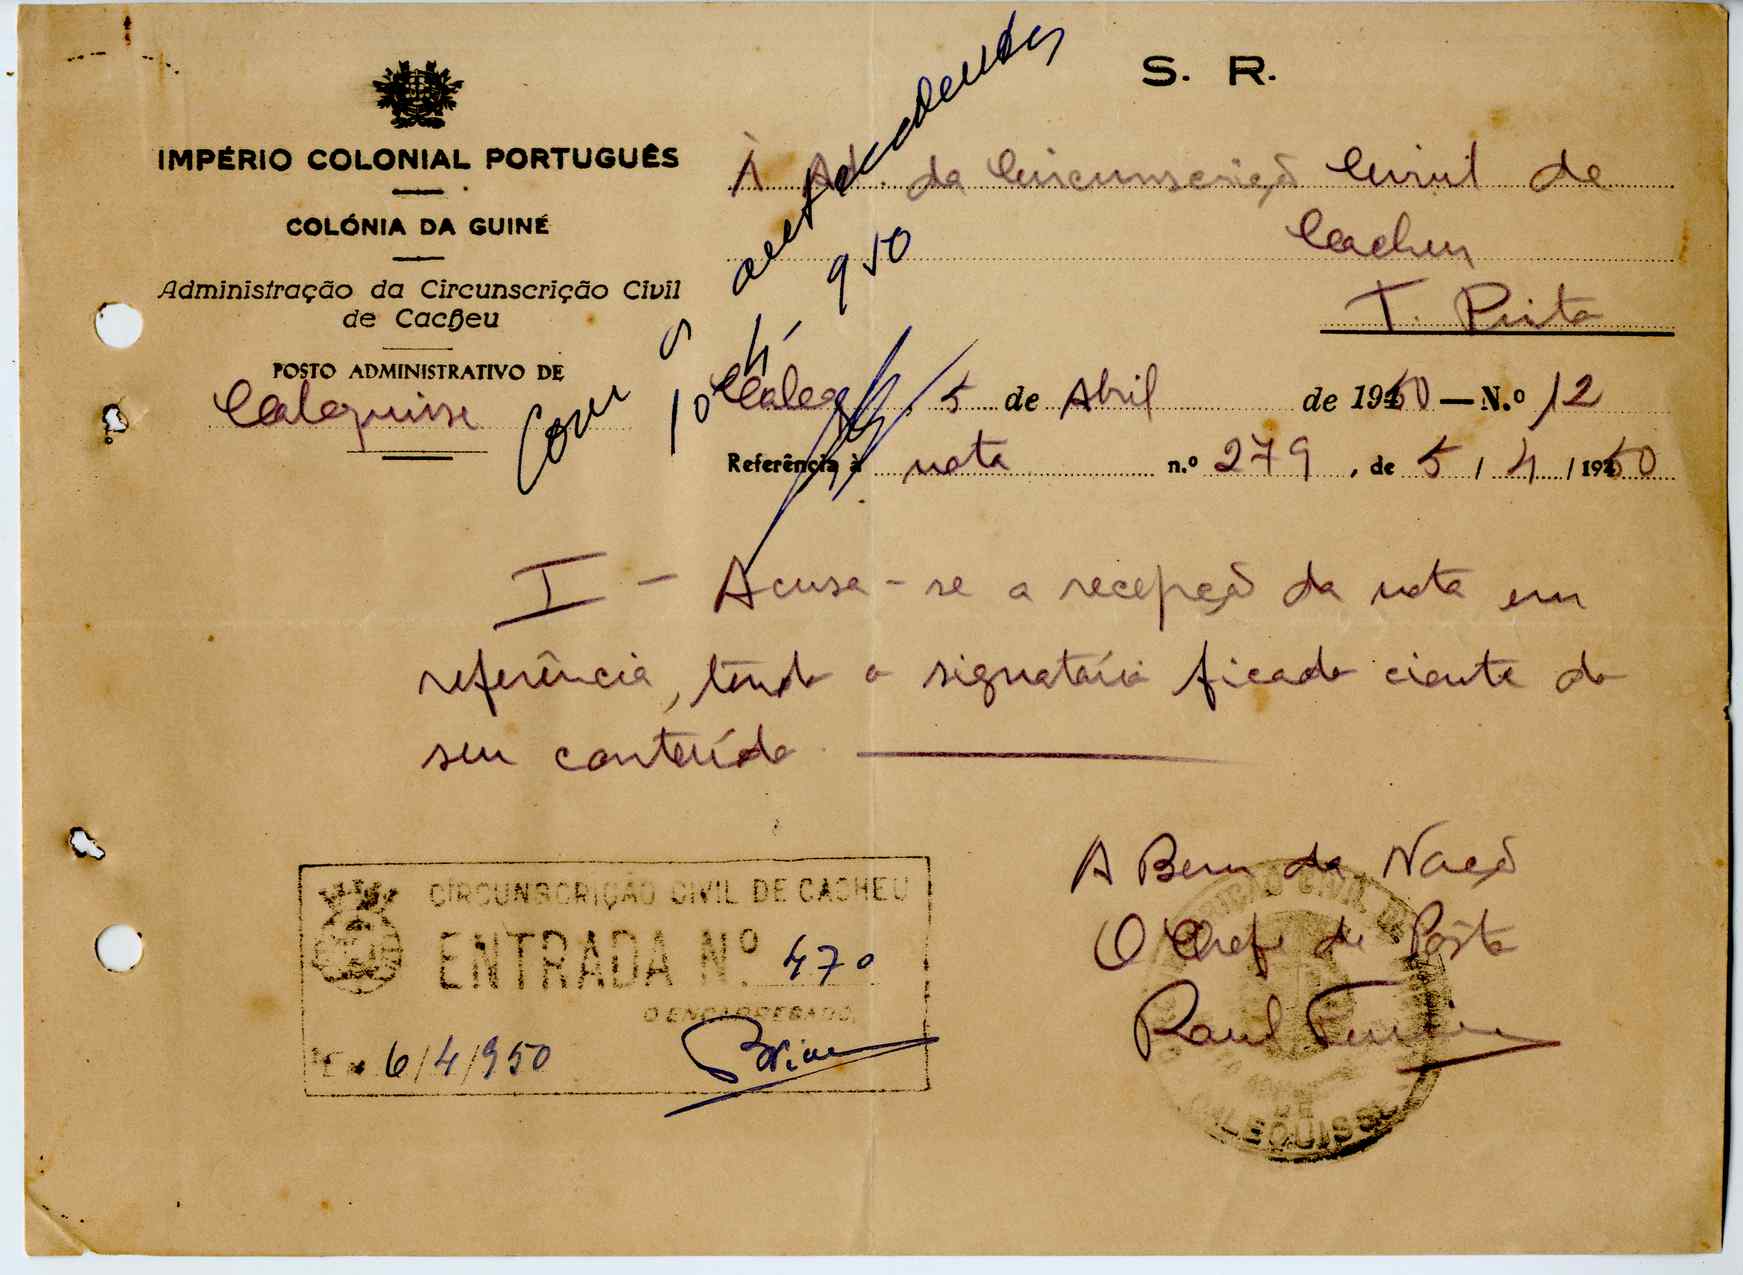 S. R.
IMPÉRIO COLONIAL PORTUGUÊS
COLÓNIA DA GUINÉ
Administração da Circunscrição Civil
de Cacheu
POSTO ADMINISTRATIVO DE
Calequisse
À Ad. da Circunscrição Civil de
Cacheu
T. Pinto
Com os antecedentes
10-4-950
Caleq , 5 de Abril de 1950 — N.º 12
Referência à nota n.º 279, de 5 / 4 / 1950
I - Acusa-se a recepção da nota em
referência, tendo o signatário ficado ciente do
seu conteúdo.
A Bem da Nação
O Chefe de Pôsto
Raul
CIRCUNSCRIÇÃO CIVIL DE CACHEU
ENTRADA N.º 470
O ENCARREGADO,
Em 6/4/950
CALEQUISSE